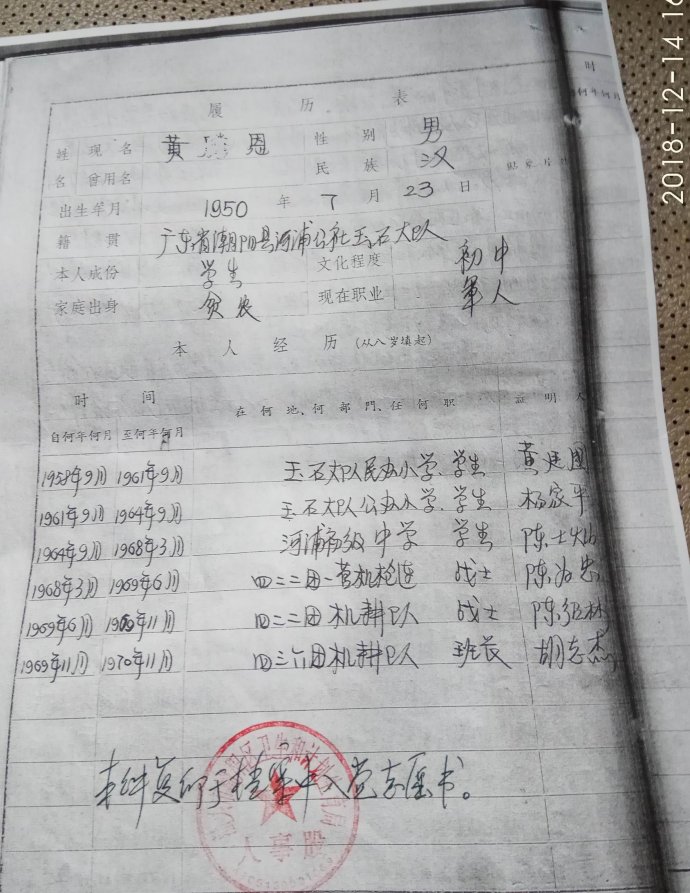 2018-12-14 16
履历表
姓名 现名 黄 恩 性别 男
曾用名 民族 汉
出生年月 1950年7月23日
籍贯 广东省潮阳县河浦公社玉石大队
本人成份 学生 文化程度 初中
家庭出身 贫农 现在职业 军人
本人经历(从八岁填起)
时间 在何地、何部門、任何职 証明人
自何年何月 至何年何月
1958年9月 1961年9月 玉石大队民办小学 学生 黄廷国
1961年9月 1964年9月 玉石大队公办小学 学生 杨家平
1964年9月 1968年3月 河浦初级中学 学生 陈士灿
1968年3月 1969年6月 四二二团一营机枪连 战士 陈治忠
1969年6月 1969年11月 四二二团机耕队 战士 陈级林
1969年11月 1970年11月 四三六团机耕队 班长 胡志杰
本件复印于档案中入党志愿书。
人事股